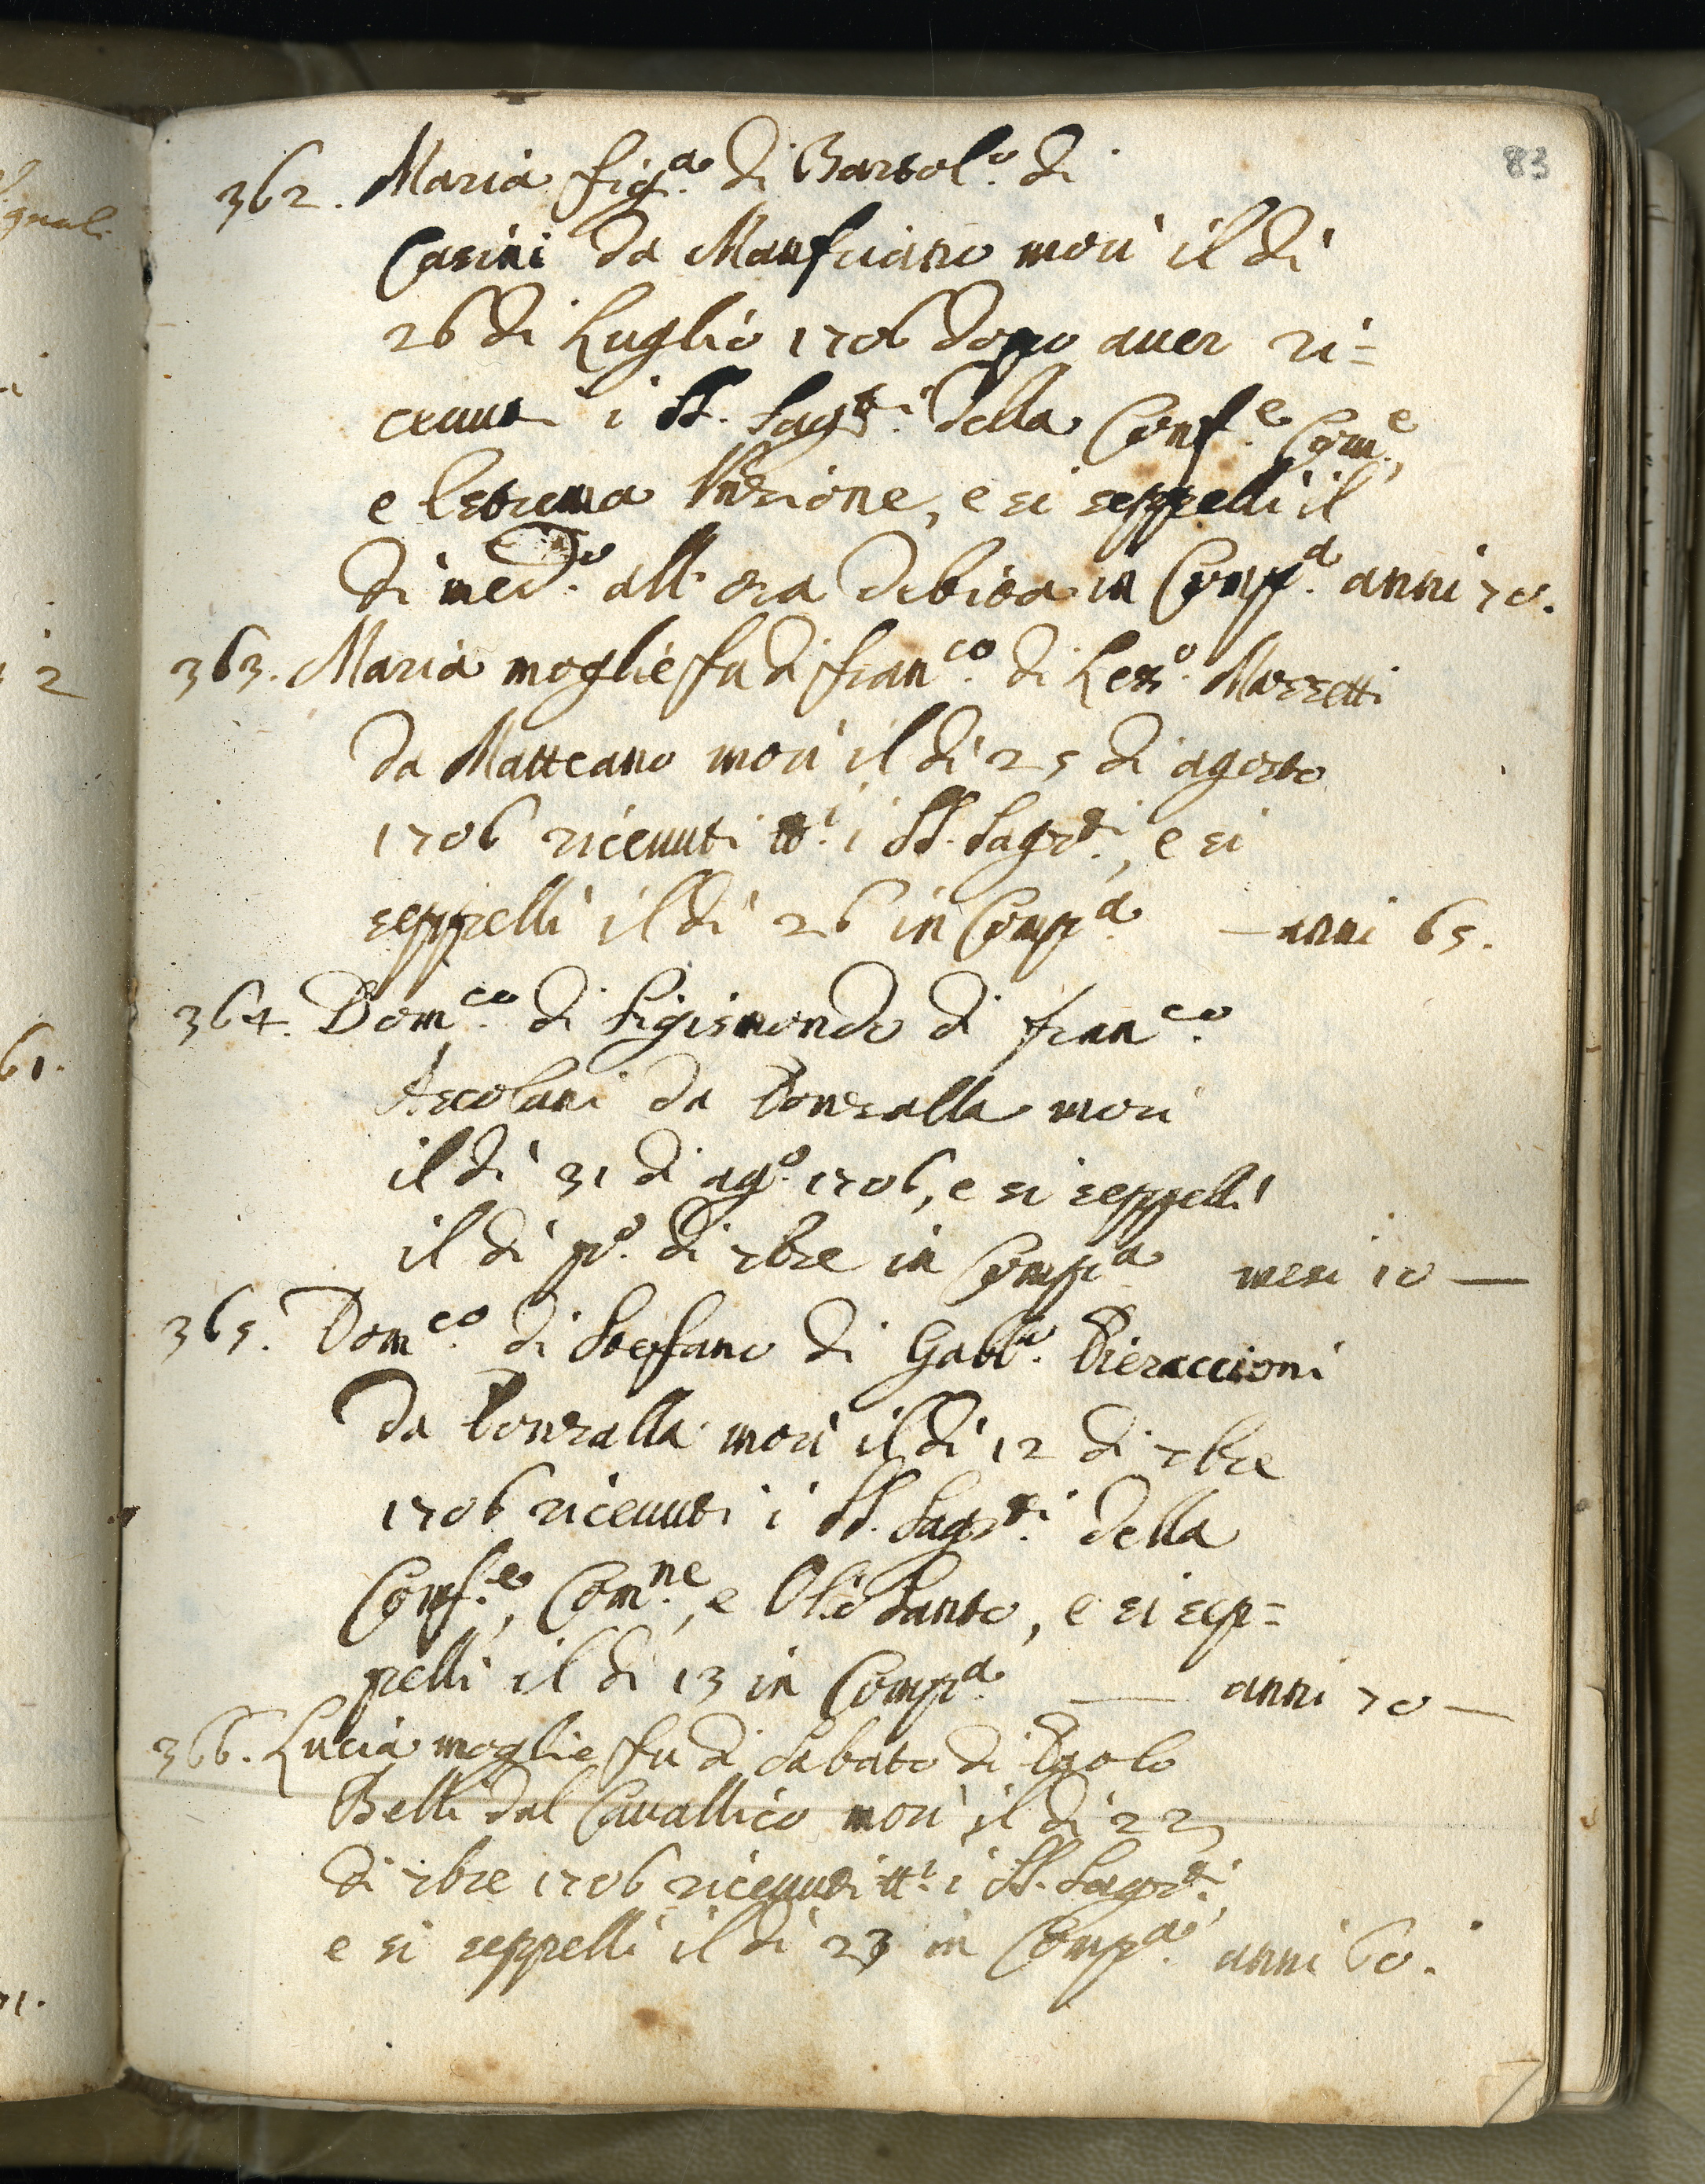 83
362. Maria fig.a di Bartol.o di
Casini da Manfriano morì il dì
26 di Luglio 1706 dopo auer ri=
ceuuti i SS. Sagr.ti della Conf.e Com.e
e Estrema Unzione, e si seppellì il
dì med.o all' ora debita in Comp.a anni 70.
363. Maria moglie fu di Fran.co di Lor.o Mazzetti
da Matteano morì il dì 25 di agosto
1706 riceuuti tt.i i SS. Sagr.ti, e si
seppellì il dì 26 in Comp.a — anni 65.
364. Dom.co di Sigismondo di Fran.co
Ascolani da Pontalla morì
il dì 31 di ag.o 1706, e si seppellì
il dì p.o di 7bre in Comp.a mesi 10 —
365. Dom.co di Stefano di Gabb.o Pieraccioni
da Pontalla morì il dì 12 di 7bre
1706 riceuuti i SS. Sagr.ti della
Conf.e, Com.ne, e Olio Santo, e si sep=
pellì il dì 13 in Comp.a — anni 70 —
366. Lucia moglie fu di Sabato di Paolo
Belli dal Cauallico morì il dì 22
di 7bre 1706 riceuuti tt.i i SS. Sagr.ti,
e si seppellì il dì 23 in Comp.a anni 60.